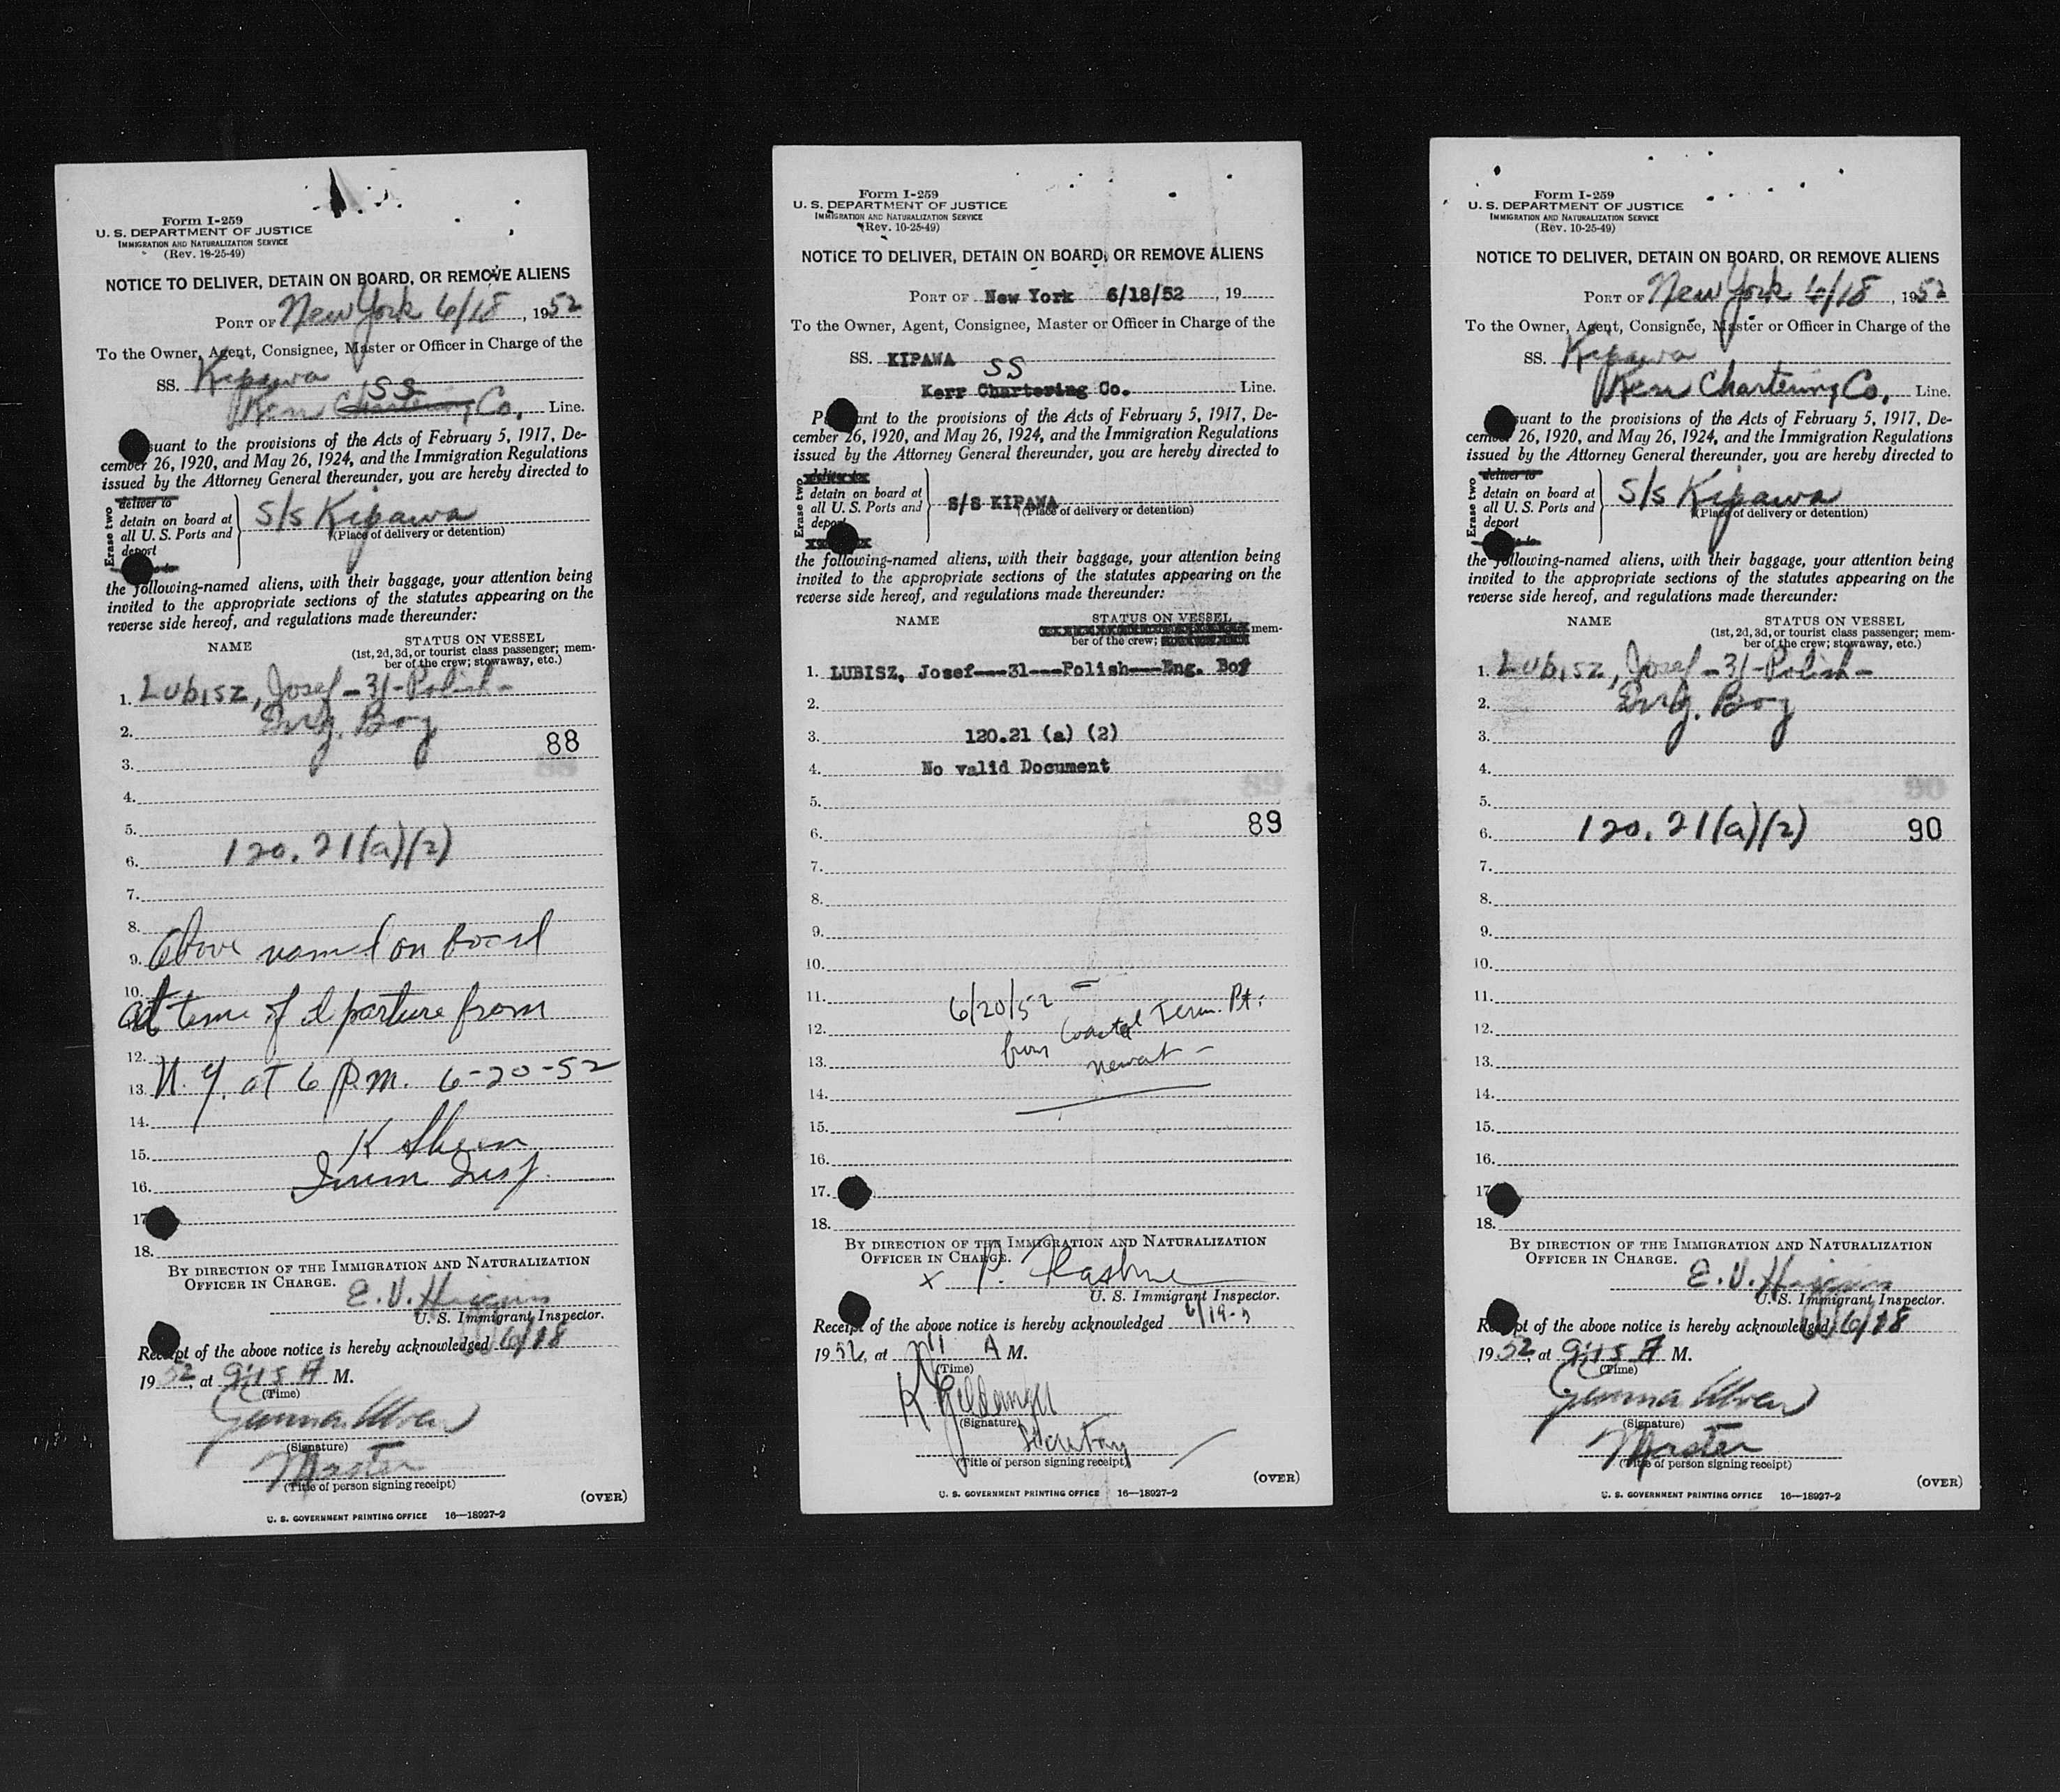 Form I-259
U. S. DEPARTMENT OF JUSTICE
IMMIGRATION AND NATURALIZATION SERVICE
(Rev. 10-25-49)
NOTICE TO DELIVER, DETAIN ON BOARD, OR REMOVE ALIENS
PORT OF New York 6/18, 1952
To the Owner, Agent, Consignee, Master or Officer in Charge of the
SS. Kipawa
SS
Kerr Chartering Co. Line.
suant to the provisions of the Acts of February 5, 1917, De-
cember 26, 1920, and May 26, 1924, and the Immigration Regulations
issued by the Attorney General thereunder, you are hereby directed to
Erase two
deliver to
detain on board at
all U. S. Ports and
deport
S/S Kipawa
(Place of delivery or detention)
the following-named aliens, with their baggage, your attention being
invited to the appropriate sections of the statutes appearing on the
reverse side hereof, and regulations made thereunder:
NAME STATUS ON VESSEL
(1st, 2d, 3d, or tourist class passenger; mem-
ber of the crew; stowaway, etc.)
1. Lubisz, Josef - 31 - Polish -
2. Eng. Boy
88
3.
4.
5.
6. 120.21(a)(2)
7.
8.
9. Above named on board
10.
at time of departure from
12.
13. N.Y. at 6 P.M. 6-20-52
14.
15.
16. Imm Insp.
17
18.
BY DIRECTION OF THE IMMIGRATION AND NATURALIZATION
OFFICER IN CHARGE.
E. V. Higgins
U. S. Immigrant Inspector.
Receipt of the above notice is hereby acknowledged 6/18
1952, at 9:15 A M.
(Time)
(Signature)
Master
(Title of person signing receipt)
(OVER)
U. S. GOVERNMENT PRINTING OFFICE 16—18927-2
Form I-259
U. S. DEPARTMENT OF JUSTICE
IMMIGRATION AND NATURALIZATION SERVICE
(Rev. 10-25-49)
NOTICE TO DELIVER, DETAIN ON BOARD, OR REMOVE ALIENS
PORT OF New York 6/18/52, 19
To the Owner, Agent, Consignee, Master or Officer in Charge of the
SS. KIPAWA
SS
Kerr Chartering Co. Line.
P ant to the provisions of the Acts of February 5, 1917, De-
cember 26, 1920, and May 26, 1924, and the Immigration Regulations
issued by the Attorney General thereunder, you are hereby directed to
Erase two
detain on board at
all U. S. Ports and
deport
S/S KIPAWA
(Place of delivery or detention)
the following-named aliens, with their baggage, your attention being
invited to the appropriate sections of the statutes appearing on the
reverse side hereof, and regulations made thereunder:
NAME STATUS ON VESSEL
mem-
ber of the crew;
1. LUBISZ, Josef---31---Polish---Eng. Boy
2.
3. 120.21 (a) (2)
4. No valid Document
5.
6. 89
7.
8.
9.
10.
11. 6/20/52 -
12. from Coastal Term. Pt.
13.
14.
15.
16.
17.
18.
BY DIRECTION OF THE IMMIGRATION AND NATURALIZATION
OFFICER IN CHARGE.
x P.
U. S. Immigrant Inspector.
Receipt of the above notice is hereby acknowledged 6/19
1952, at 11 A M.
(Time)
(Signature)
Secretary
(Title of person signing receipt)
(OVER)
U. S. GOVERNMENT PRINTING OFFICE 16—18927-2
Form I-259
U. S. DEPARTMENT OF JUSTICE
IMMIGRATION AND NATURALIZATION SERVICE
(Rev. 10-25-49)
NOTICE TO DELIVER, DETAIN ON BOARD, OR REMOVE ALIENS
PORT OF New York 6/18, 1952
To the Owner, Agent, Consignee, Master or Officer in Charge of the
SS. Kipawa
Kerr Chartering Co. Line.
suant to the provisions of the Acts of February 5, 1917, De-
cember 26, 1920, and May 26, 1924, and the Immigration Regulations
issued by the Attorney General thereunder, you are hereby directed to
Erase two
deliver to
detain on board at
all U. S. Ports and
deport
S/S Kipawa
(Place of delivery or detention)
the following-named aliens, with their baggage, your attention being
invited to the appropriate sections of the statutes appearing on the
reverse side hereof, and regulations made thereunder:
NAME STATUS ON VESSEL
(1st, 2d, 3d, or tourist class passenger; mem-
ber of the crew; stowaway, etc.)
1. Lubisz, Josef - 31 - Polish -
2. Eng. Boy
3.
4.
5.
6. 120.21(a)(2) 90
7.
8.
9.
10.
11.
12.
13.
14.
15.
16.
17
18.
BY DIRECTION OF THE IMMIGRATION AND NATURALIZATION
OFFICER IN CHARGE.
E. V. Higgins
U. S. Immigrant Inspector.
Receipt of the above notice is hereby acknowledged 6/18
1952, at 9:15 A M.
(Time)
(Signature)
Master
(Title of person signing receipt)
(OVER)
U. S. GOVERNMENT PRINTING OFFICE 16—18927-2